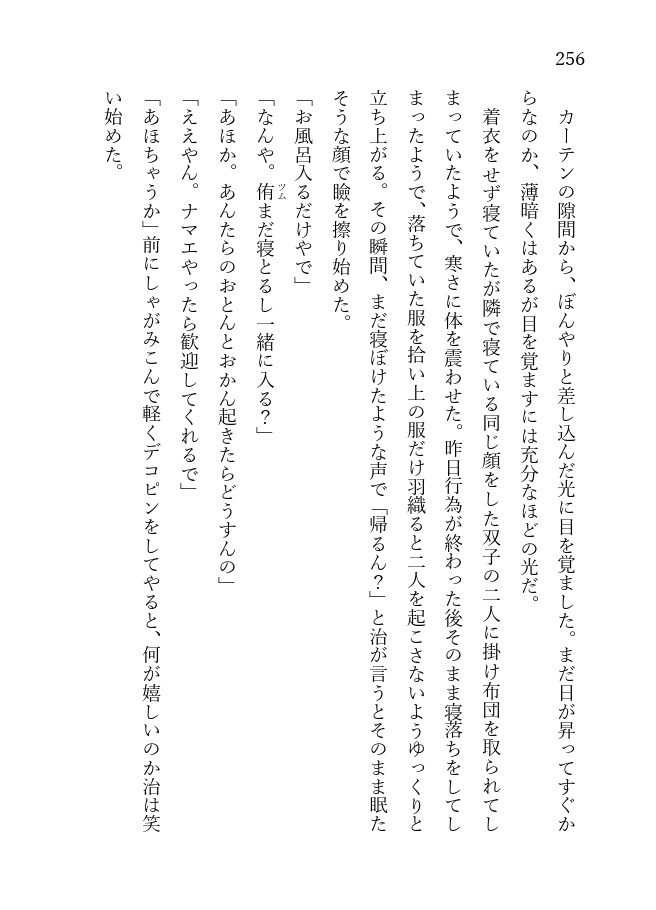 256
カーテンの隙間から、ぼんやりと差し込んだ光に目を覚ました。まだ日が昇ってすぐか
らなのか、薄暗くはあるが目を覚ますには充分なほどの光だ。
着衣をせず寝ていたが隣で寝ている同じ顔をした双子の二人に掛け布団を取られてし
まっていたようで、寒さに体を震わせた。昨日行為が終わった後そのまま寝落ちをしてし
まったようで、落ちていた服を拾い上の服だけ羽織ると二人を起こさないようゆっくりと
立ち上がる。その瞬間、まだ寝ぼけたような声で「帰るん？」と治が言うとそのまま眠た
そうな顔で瞼を擦り始めた。
「お風呂入るだけやで」
「なんや。侑まだ寝とるし一緒に入る？」
ツム
「あほか。あんたらのおとんとおかん起きたらどうすんの」
「ええやん。ナマエやったら歓迎してくれるで」
「あほちゃうか」前にしゃがみこんで軽くデコピンをしてやると、何が嬉しいのか治は笑
い始めた。